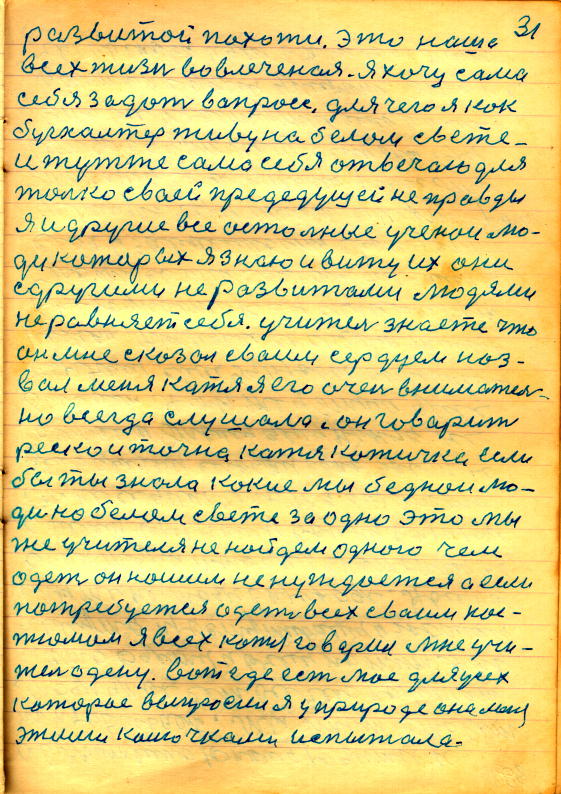 31
развитой похоти. Это наша
всех тизн вовлеченая. Я хочу сама
себя задат вапросс, для чего я как
бугхалтер живу на белом свете -
и тутже сама себя отвечаю для
толко сваей предедущей не правды
я и другие все остолные ученои лю-
ди которых я знаю и вижу их они
сдругими не развитами людями
неравняет себя. учител знаете что
он мне сказал сваим сердцем наз-
вал меня Катя я его очен внимател-
но всегда слушала. он говарит
реско и точна, катя котичка если
бы ты знола кокие мы беднои лю-
ди на белом свете за одно это мы
же учителя не найдем одного чем
одет он нашим не нуждоется а если
потребуется одет всех сваим кос-
тюмом я всех катя говарил мне учи-
тел одену. вот где ест мое для усех
которое выпросил я у природе она мая
этими кошочками испытала.